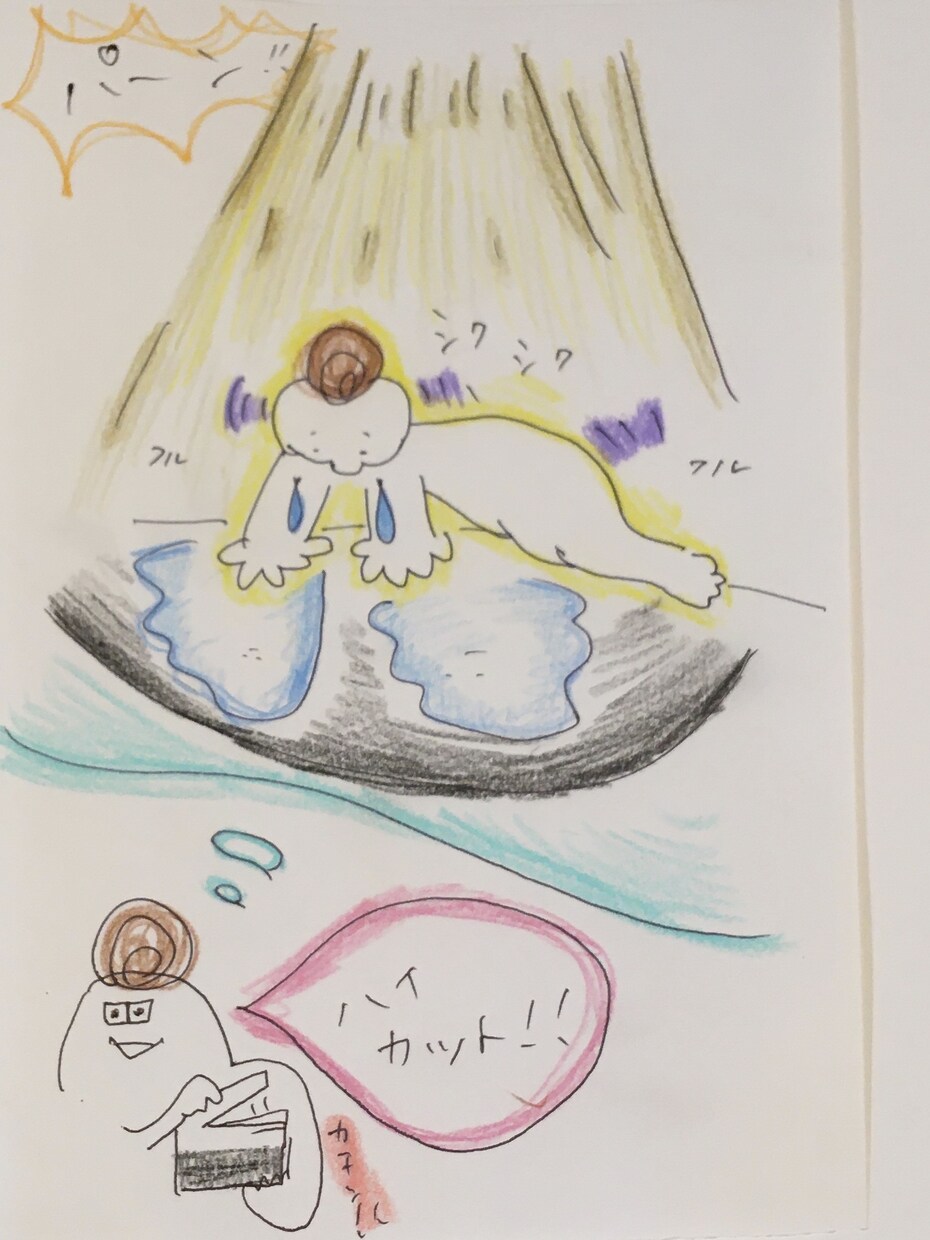 バーン!!
シクシク
フル
フル
ハイ
カット!!
カチンッ